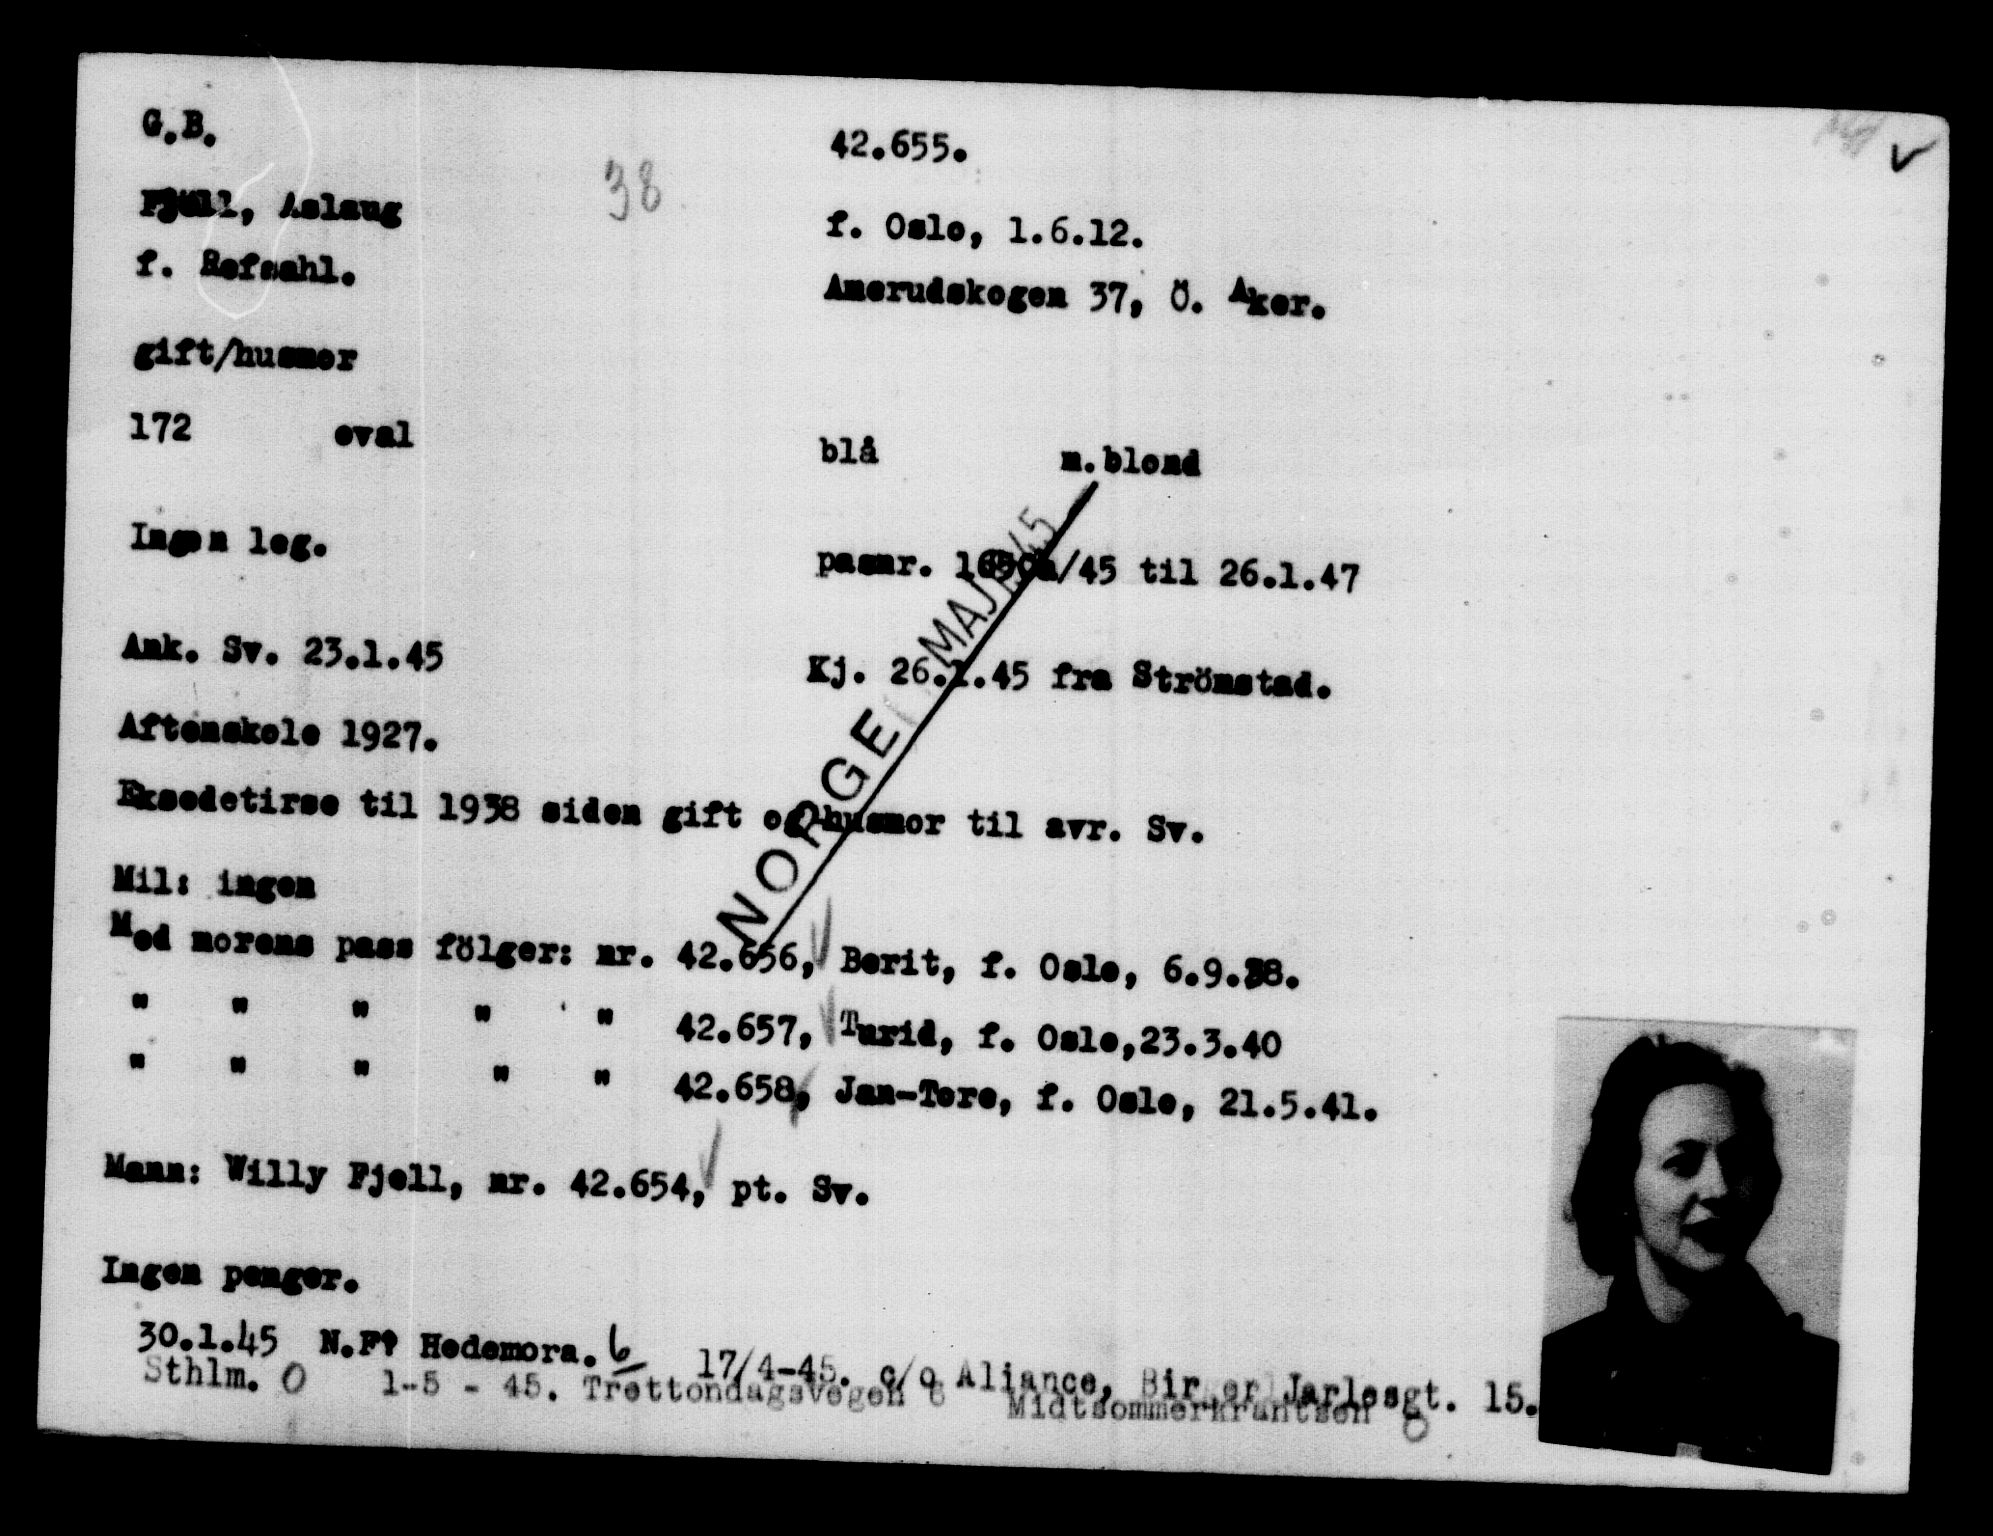 G.B. 42.655.
38
Fjell, Aslaug f. Oslo, 1.6.12.
f. Refsahl. Amerudskogen 37, Ö. Aker.
gift/husmor
172 oval blå m.blond
Ingen leg. pasnr. /45 til 26.1.47
Ank. Sv. 23.1.45 Kj. 26.1.45 fra Strömstad.
NORGE MAJ 45
Aftenskole 1927.
Eksedetirse til 1938 siden gift og husmor til avr. Sv.
Mil: ingen
Med morens pass fölger: nr. 42.656, Berit, f. Oslo, 6.9.38.
" " " " " 42.657, Turid, f. Oslo,23.3.40
" " " " " 42.658, Jan-Tore, f. Oslo, 21.5.41.
Mann: Willy Fjell, nr. 42.654, pt. Sv.
Ingen penger.
30.1.45 N.F. Hedemora. 6 17/4-45. c/o Aliance, Birger Jarlesgt. 15.
Sthlm. O 1-5 - 45. Trettondagsvegen 6 Midtsommerkrantsen